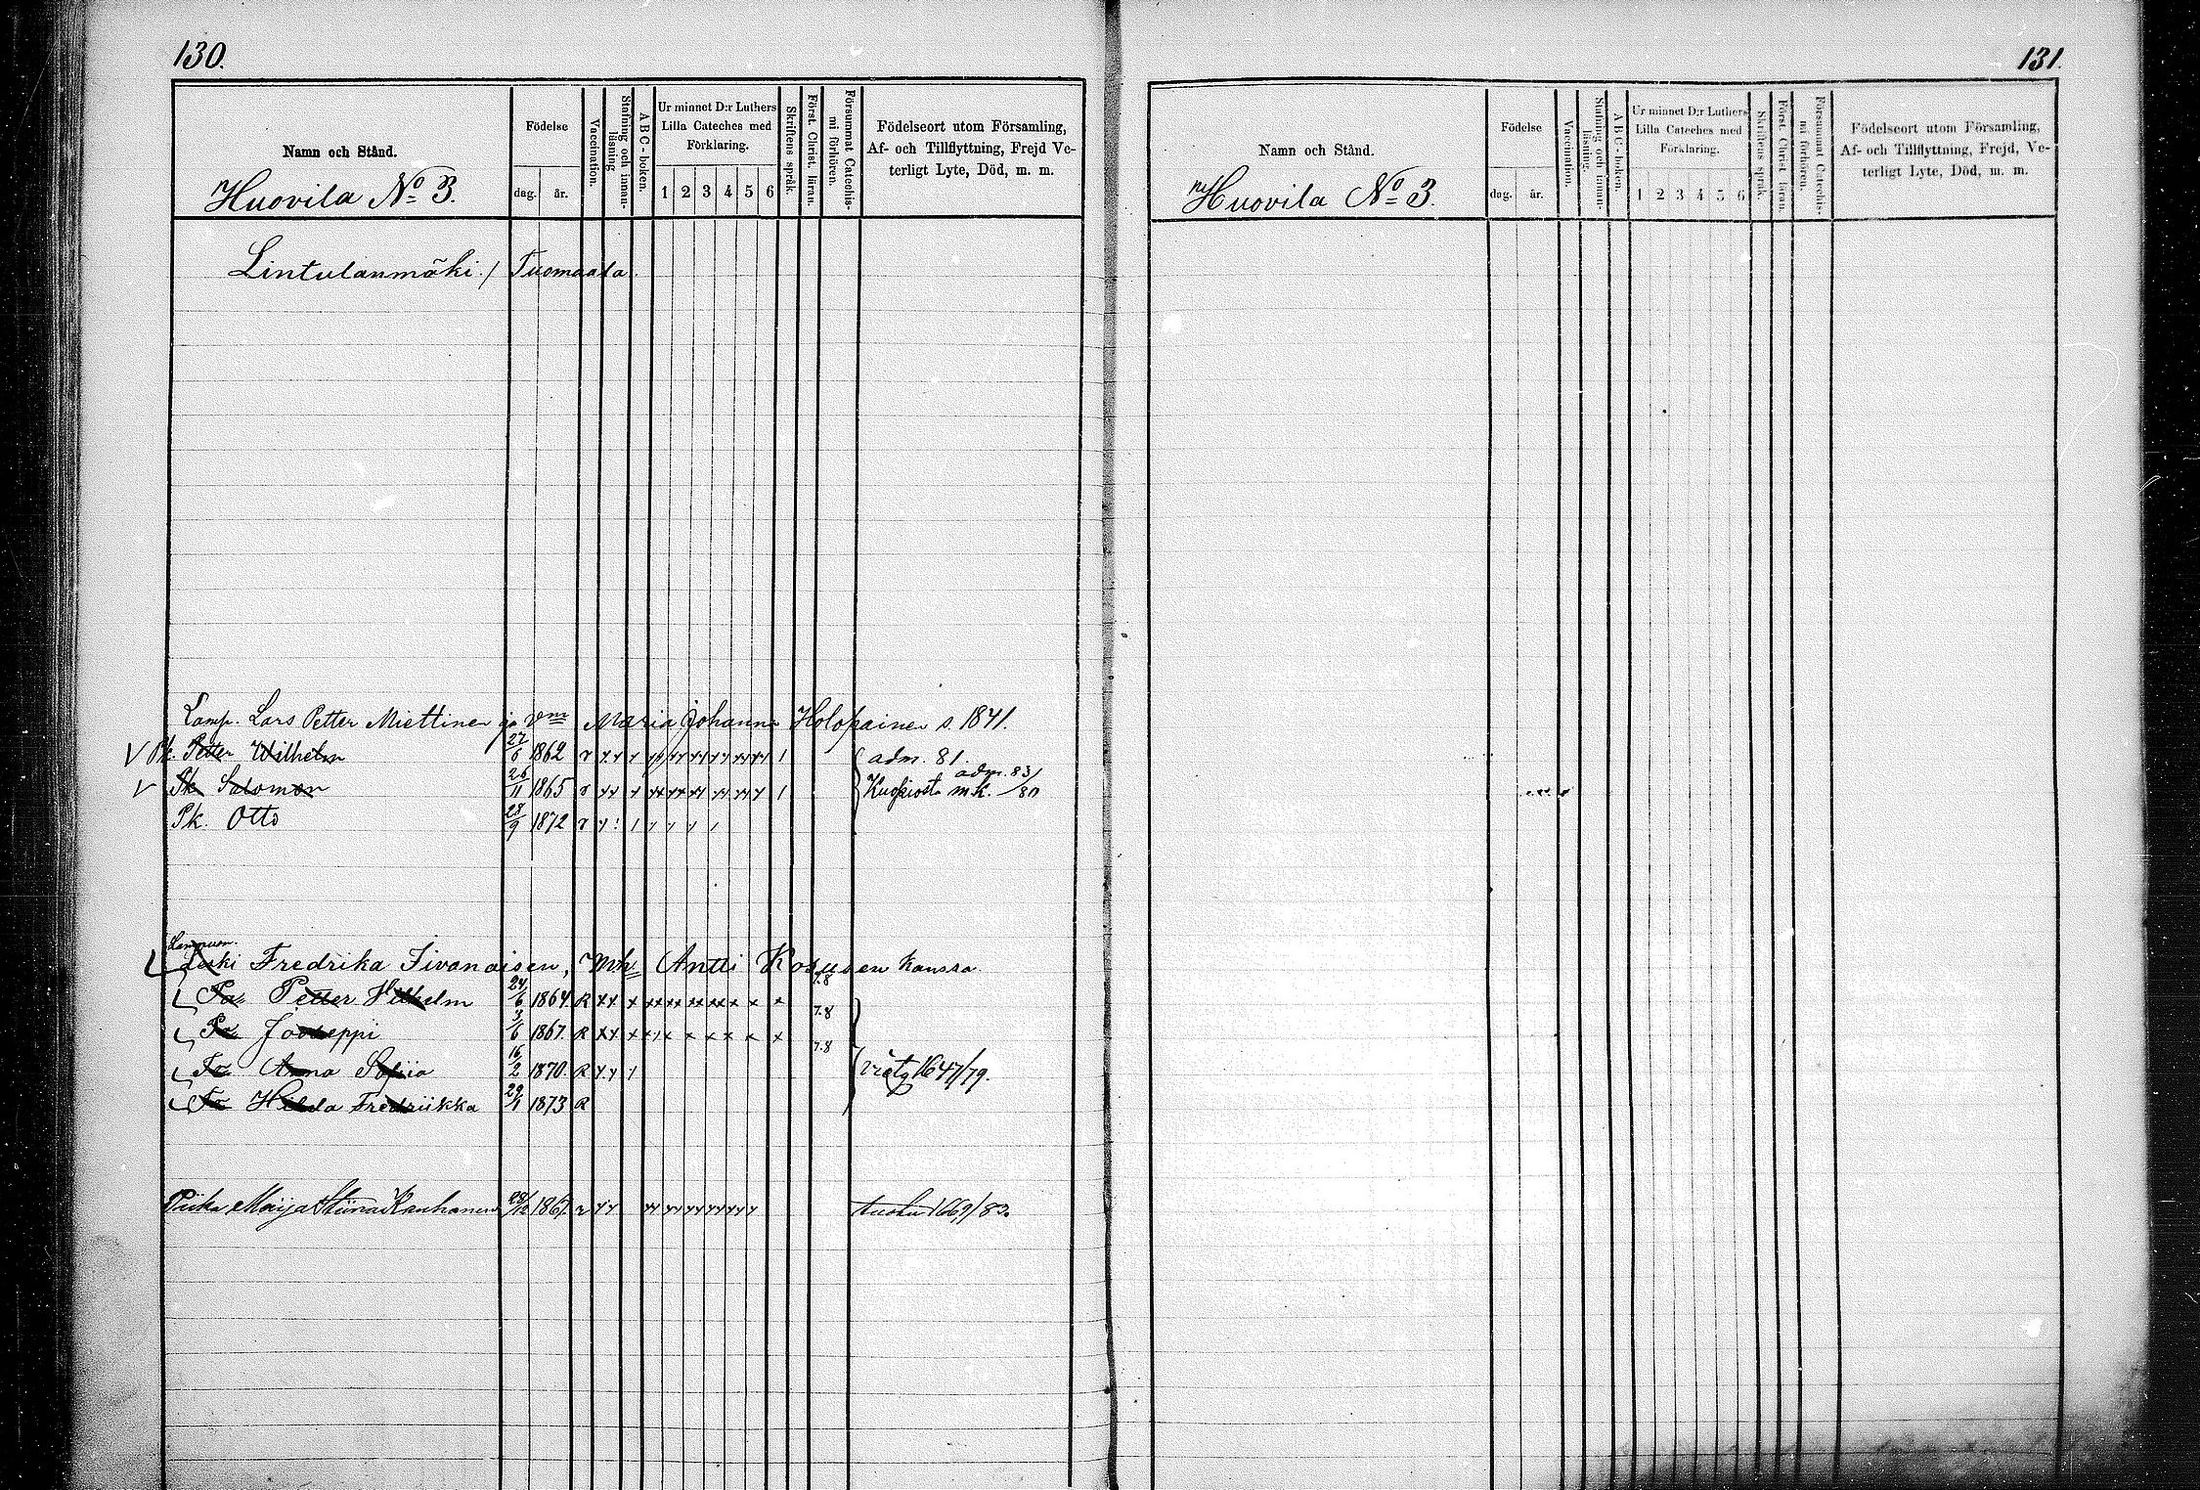 130.
Namn och Stånd.
Huovila No 3.
Födelse
dag. år.
Vaccination.
Stafning och innanläsning
ABC-boken.
Ur minnet D:r Luthers
Lilla Cateches med
Förklaring.
1 2 3 4 5 6
Skriftens språk.
Först. Christ. läran.
Försummat Catechismi förhören.
Födelseort utom Församling,
Af- och Tillflyttning, Frejd Ve-
terligt Lyte, Död, m. m.
Lintulanmäki / Tuomaala
Lamp. Lars Petter Miettinen ja vm Maria Johanna Holopainen s. 1841.
Pk. Petter Wilhelm 27/6 1862 adm. 81.
Pk. Salomon 26/11 1865 Kuopiosta m.k. /80 adm. 83/
Pk. Otto 28/9 1872
Leski Fredrika Iivonaisen, Mh Antti Kosusen kanssa
Petter Wilhelm 24/6 1864. R 7.8
Jooseppi 3/6 1867. R 7.8
Anna Sofiia 16/2 1870. R 7.8
Hilda Fredriikka 29/1 1873 R
1647/79.
Piika Maija Stiina Kauhanen 28/12 1867. 1669/83.
131.
Namn och Stånd.
Huovila No 3.
Födelse
dag. år.
Vaccination.
Stafning och innanläsning.
ABC-boken.
Ur minnet D:r Luthers
Lilla Cateches med
Förklaring.
1 2 3 4 5 6
Skriftens språk.
Först. Christ. läran.
Försummat Catechismi förhören.
Födelseort utom Församling,
Af- och Tillflyttning, Frejd, Ve-
terligt Lyte, Död, m. m.